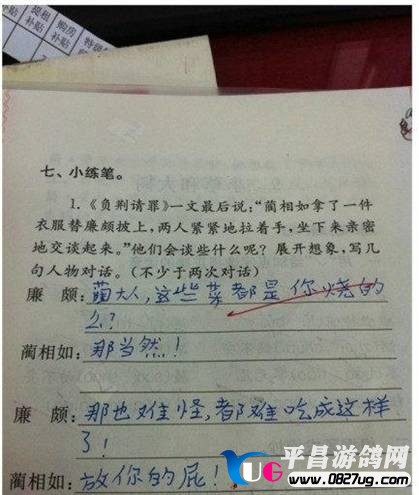 提租
补贴
购房
补贴
特级
七、小练笔。
1.《负荆请罪》一文最后说:“蔺相如拿了一件
衣服替廉颇披上,两人紧紧地拉着手,坐下来亲密
地交谈起来。”他们会谈些什么呢?展开想象,写几
句人物对话。(不少于两次对话)
廉 颇:蔺大人,这些菜都是你烧的
么?
蔺相如:那当然!
廉 颇:那也难怪,都难吃成这样
了!
蔺相如:放你的屁!
UG 平昌游鸽网
www.0827ug.com